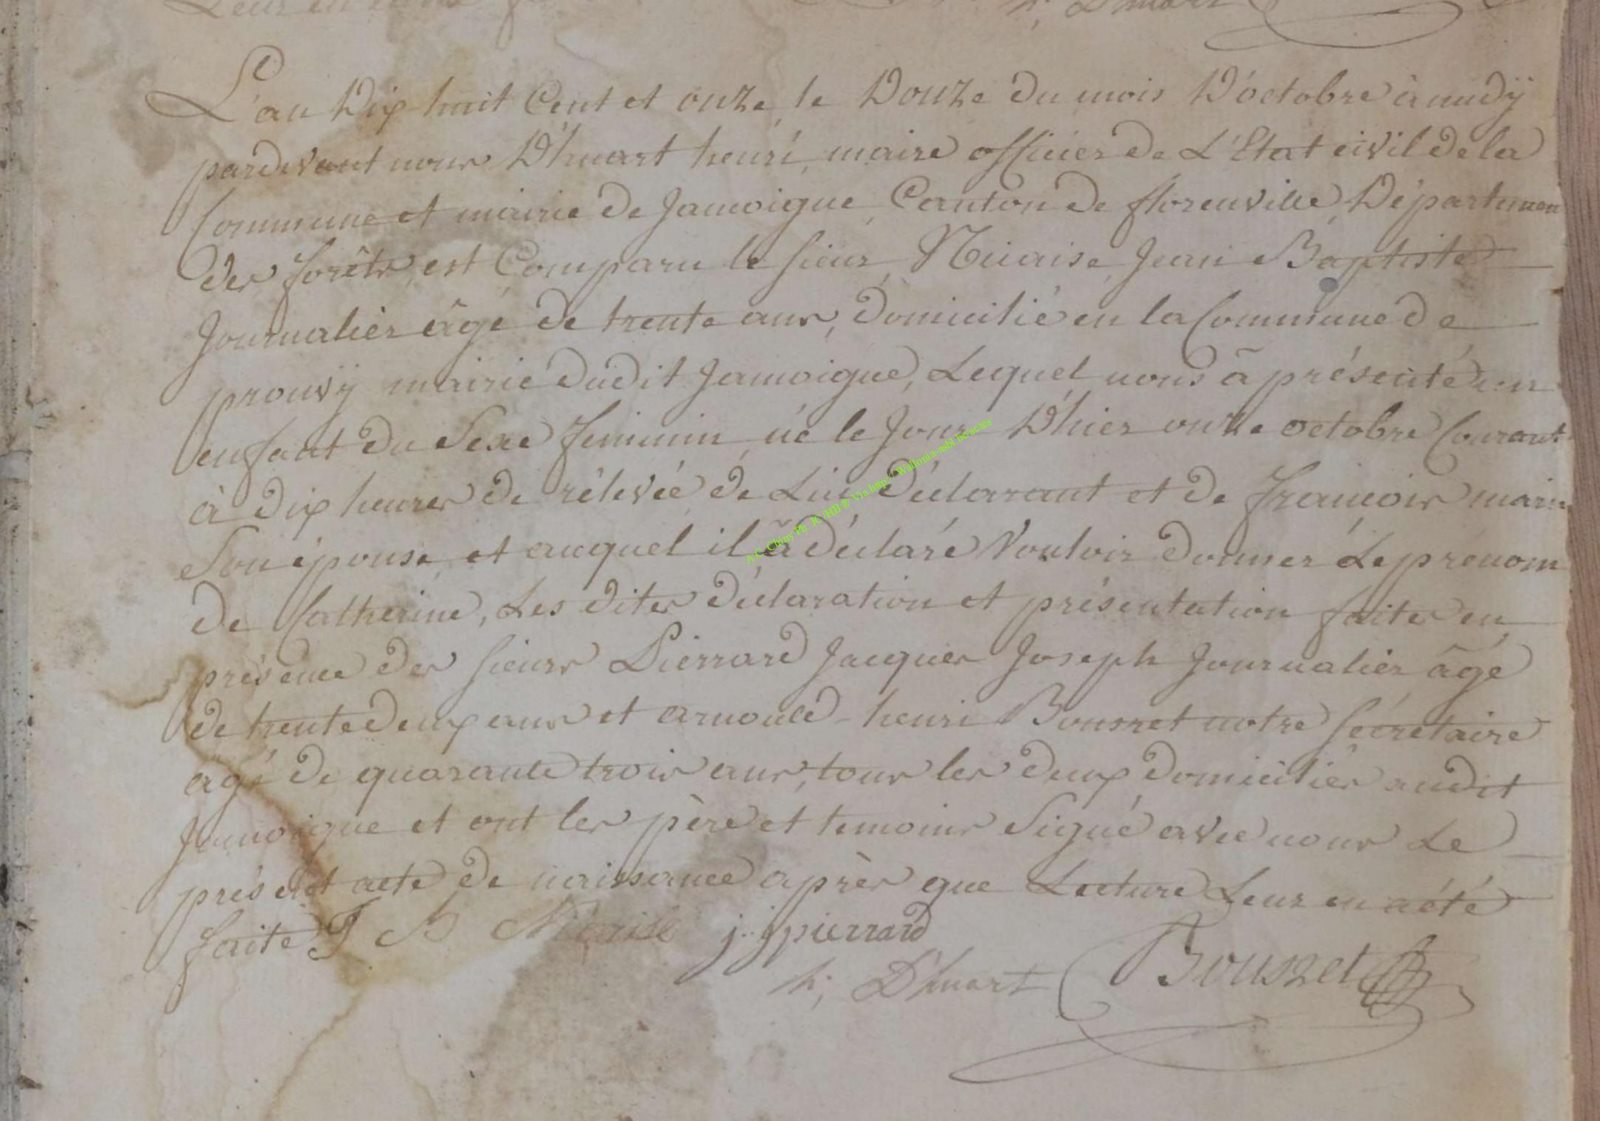 h; D'huart
L'an Dix huit Cent et onze, le Douze du mois D'octobre à midÿ
pardevant nous D'huart henri, maire officier de L'Etat civil de la
Commune et mairie de Jamoigne, Canton de florenville, Départemen
des forêts, est Comparu le sieur Nicaise Jean Baptiste
Journalier âgé de trente ans, domicilié en la Commune de
prouvÿ mairie dudit Jamoigne, Lequel nous à présenté un
enfant du Sexe feminin né le jour D'hier onze octobre Courant
à dix heures de rélevée de Lui Déclarant et de françois marie
Son épouse et auquel il à déclaré Vouloir donner Le prenom
de Catherine, Les dites déclaration et présentation faites en
présence des sieurs Pierrard Jacques Joseph Journalier âgé
de trente deux ans et arnould henri Bousret notre Sécrétaire
agé de quarante trois ans, tous les deux domiciliés audit
Jamoigne et ont les père et temoins Signé avec nous Le
présent acte de naissance après que Lecture Leur en a été
faite J B Nicaise j. j pierrard
h; D'huart Bousret